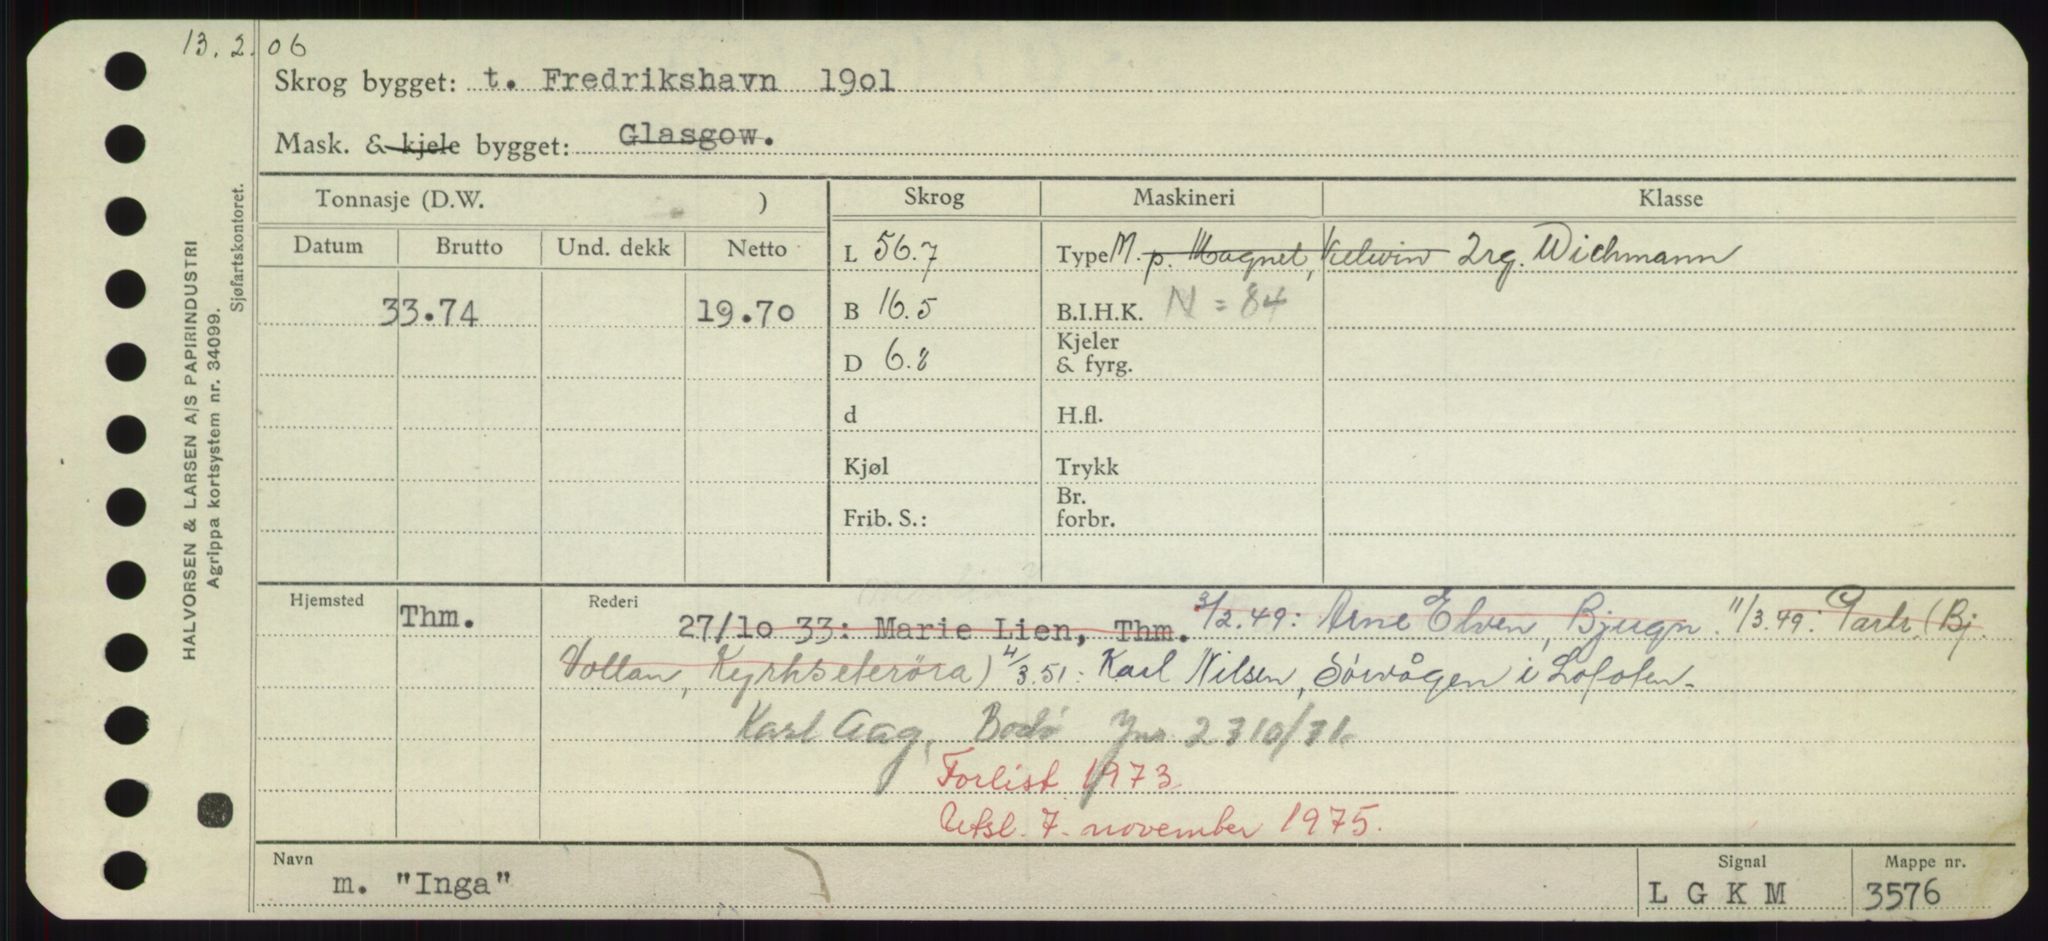 13.2.06
Skrog bygget: t. Fredrikshavn 19o1
Mask. & kjele bygget: Glasgow.
Tonnasje (D.W. )
Skrog
Maskineri
Klasse
Datum Brutto Und. dekk Netto
L 56.7
Type M. p. Magnet, Kelvin 2rg. Wichmann
33.74 19.70
B 16.5
B.I.H.K. N = 84
D 6.8
Kjeler
& fyrg.
d
H.fl.
Kjøl
Trykk
Frib. S.:
Br.
forbr.
Hjemsted Thm.
Rederi 27/1o 33: Marie Lien, Thm. 3/2.49: Arne Elven, Bjugn. 11/3.49: Partr. (Bj.
Vollan, Kyrksæterøra) 4/3.51: Karl Nilsen, Sørvågen i Lofoten.
Karl Aag, Bodø 2310/71.
Forlist 1973.
Utsl. 7. november 1975.
Navn m. "Inga"
Signal L G K M
Mappe nr. 3576
HALVORSEN & LARSEN A/S PAPIRINDUSTRI
Agrippa kortsystem nr. 34099.
Sjøfartskontoret.